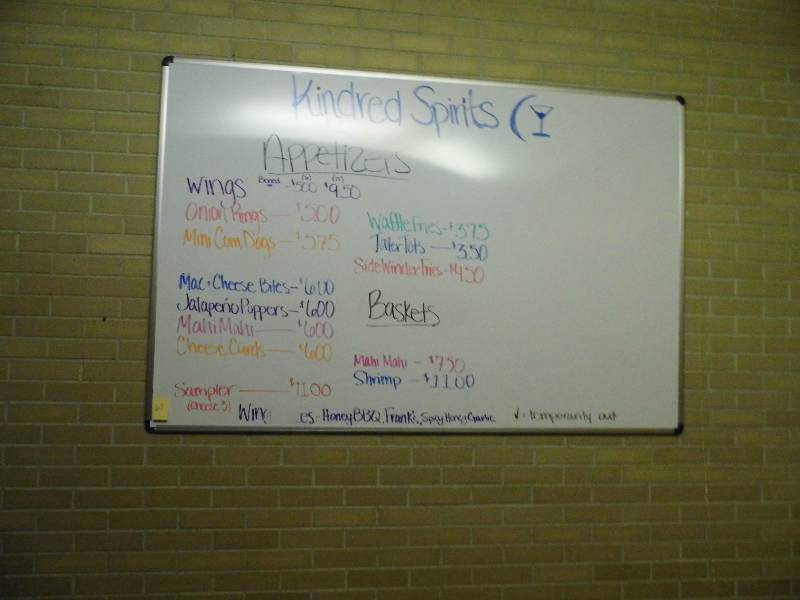 Kindred Spirits
Appetizers
Wings Boned $5.00 $9.50
Onion Rings — $5.00
Mini Corn Dogs — $5.75
Mac + Cheese Bites — $6.00
Jalapeño Poppers — $6.00
Mahi Mahi — $6.00
Cheese Curds — $6.00
Sampler — $11.00
(choose 3)
Waffle Fries - $3.75
Tater Tots — $3.50
Side Winder Fries - $4.50
Baskets
Mahi Mahi - $7.50
Shrimp - $11.00
Wing es - Honey BBQ, Frank's, Spicy Honey Garlic
√ - temporarily out